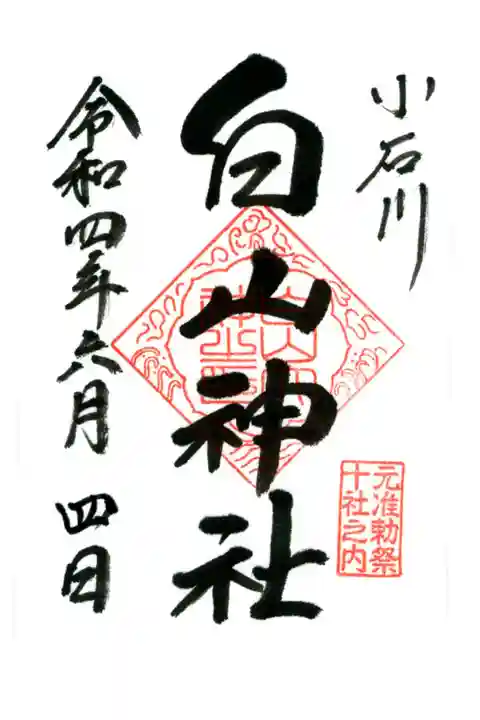 小石川
元准勅祭
十社之内
白山神社
令和四年六月四日